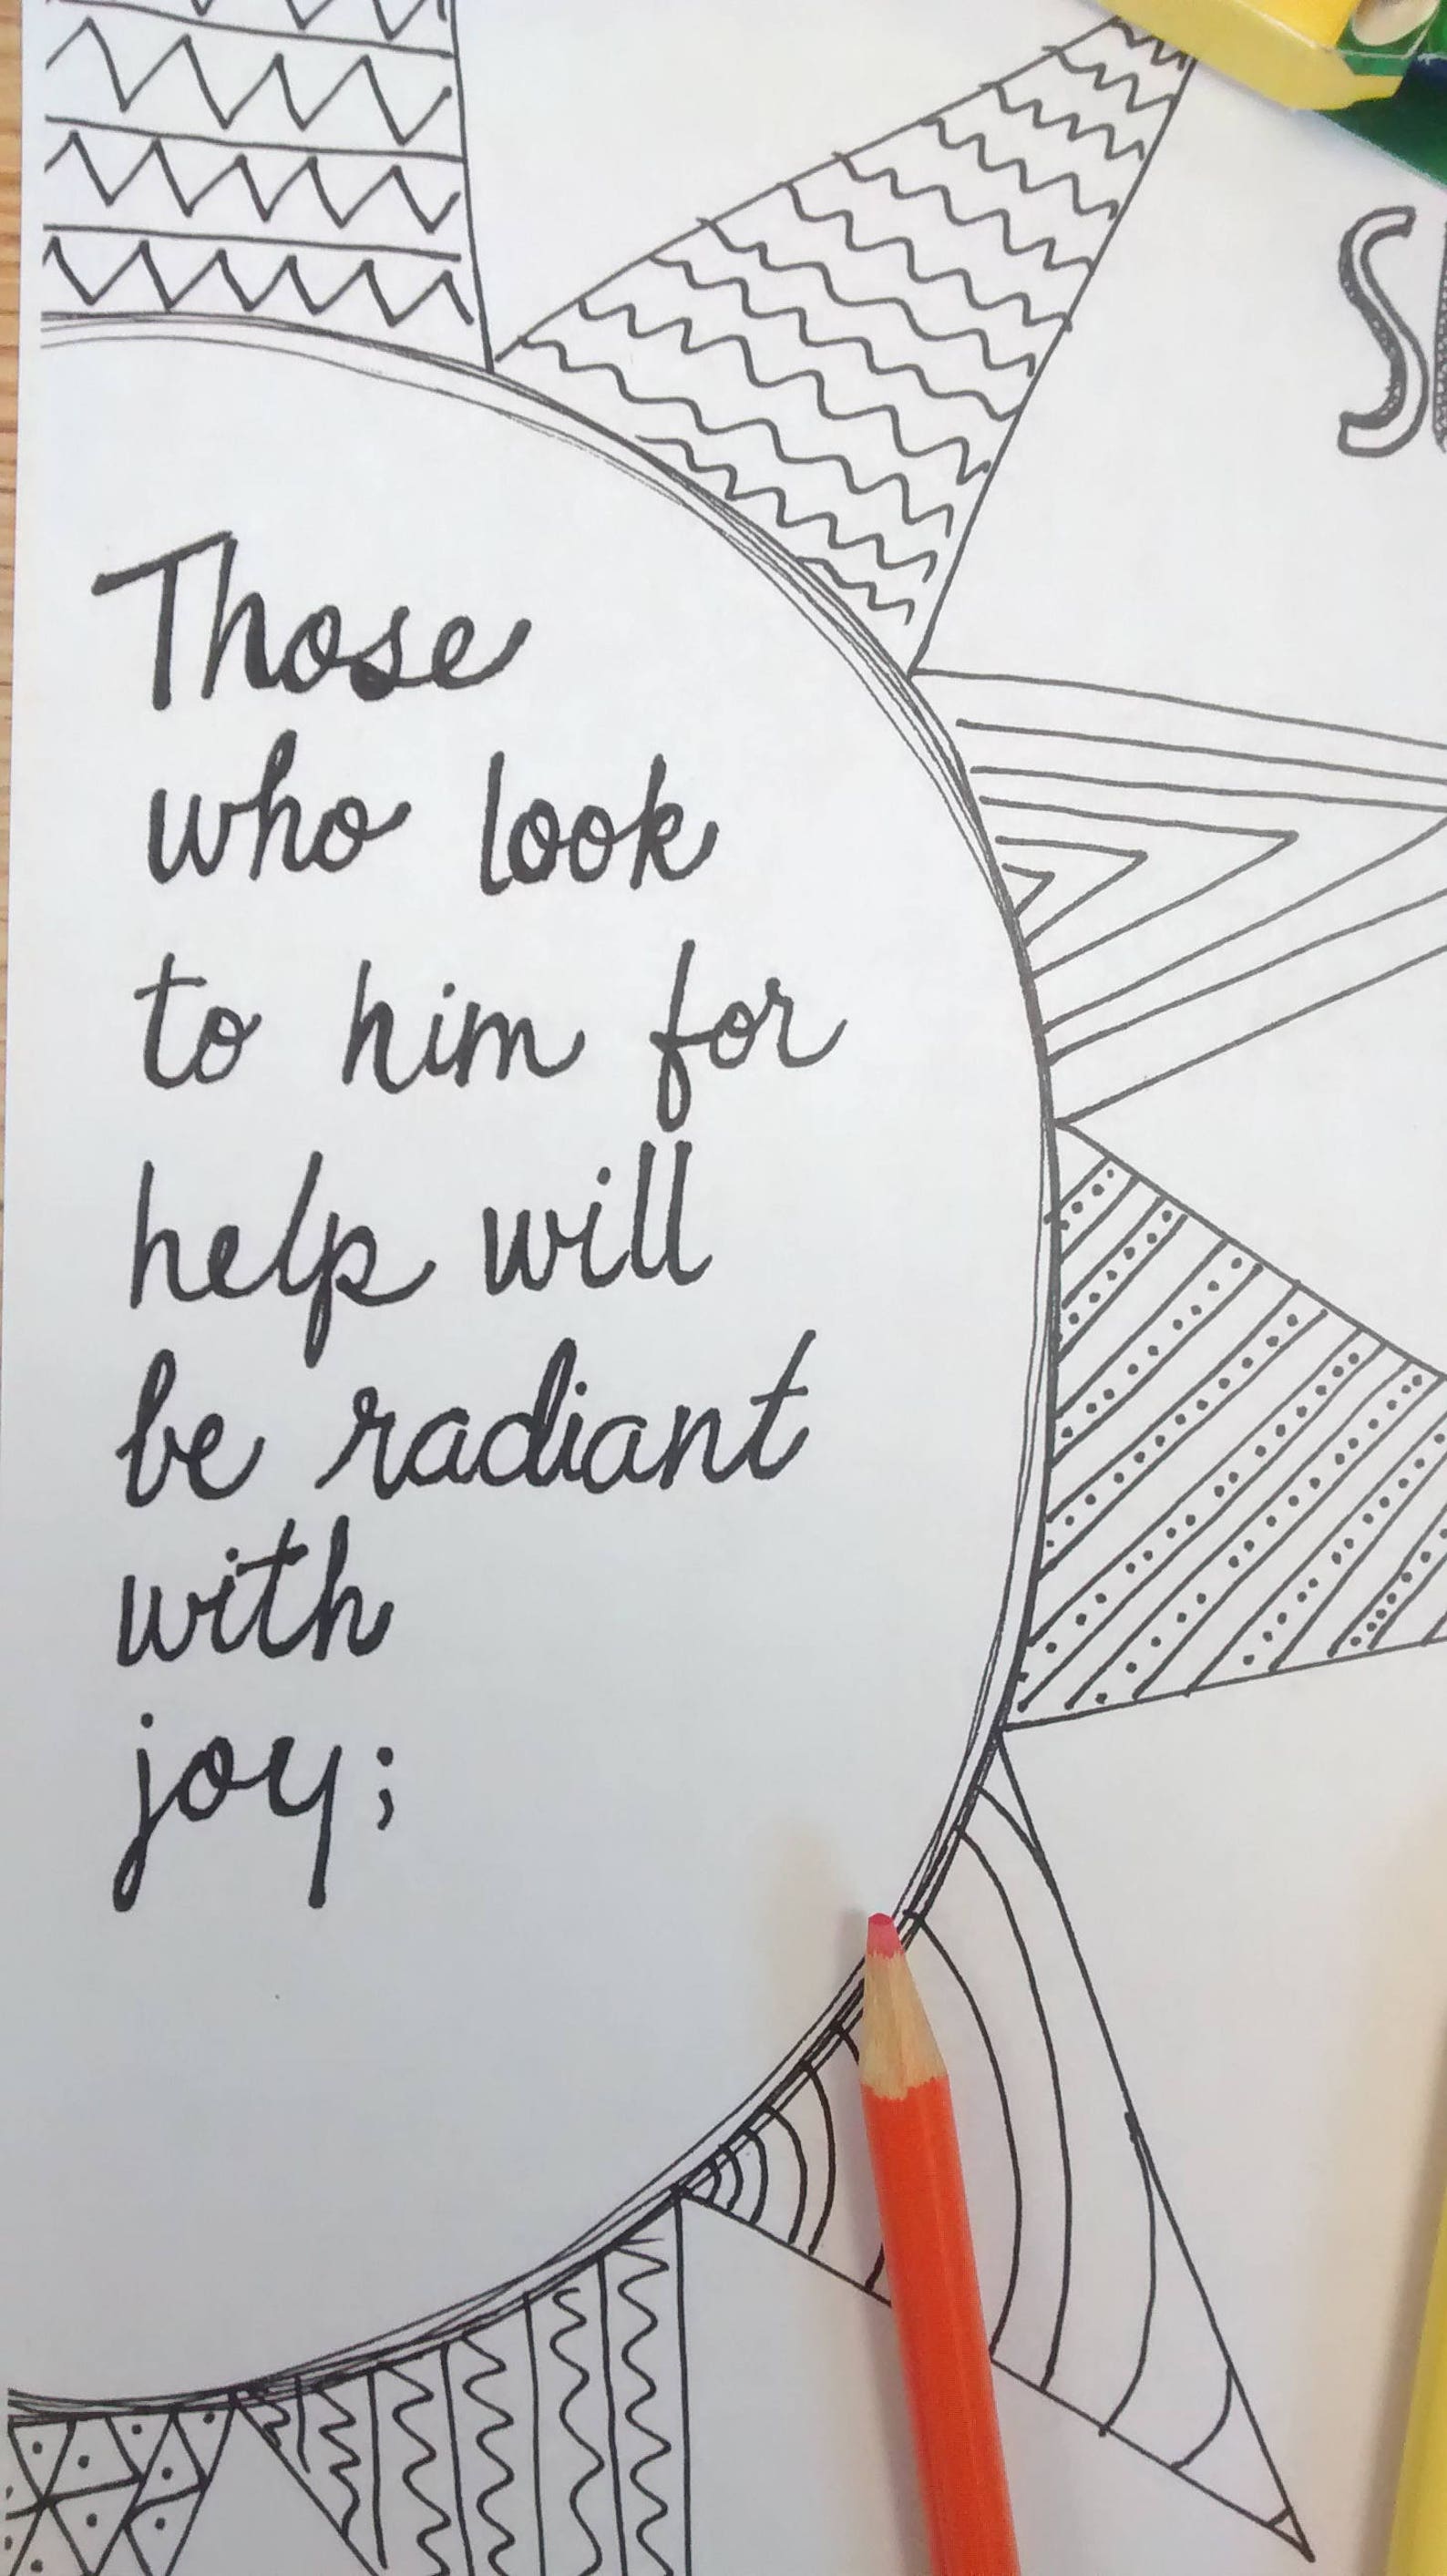 Those
who look
to him for
help will
be radiant
with
joy;
S